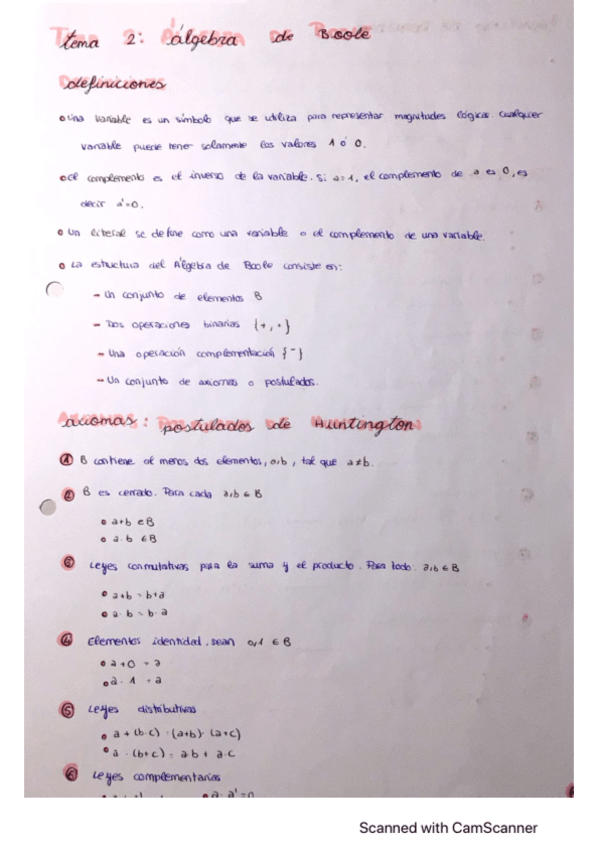 tema 2: álgebra de Boole
definiciones
• Una variable es un símbolo que se utiliza para representar magnitudes lógicas. Cualquier
variable puede tener solamente los valores 1 ó 0.
• el complemento es el inverso de la variable. Si a=1, el complemento de a es 0, es
decir a'=0.
• Un literal se define como una variable o el complemento de una variable.
• La estructura del Álgebra de Boole consiste en:
- Un conjunto de elementos B
- Dos operaciones binarias {+, ·}
- Una operación complementación {¯}
- Un conjunto de axiomas o postulados.
axiomas: postulados de Huntington
① B contiene al menos dos elementos, a,b, tal que a≠b.
② B es cerrado. Para cada a,b ∈ B
• a+b ∈ B
• a·b ∈ B
③ Leyes conmutativas para la suma y el producto. Para todo a,b ∈ B
• a+b = b+a
• a·b = b·a
④ Elementos identidad, sean 0,1 ∈ B
• a+0 = a
• a·1 = a
⑤ Leyes distributivas
• a + (b·c) = (a+b)·(a+c)
• a·(b+c) = a·b + a·c
⑥ Leyes complementarias
• a·a'=0
Scanned with CamScanner